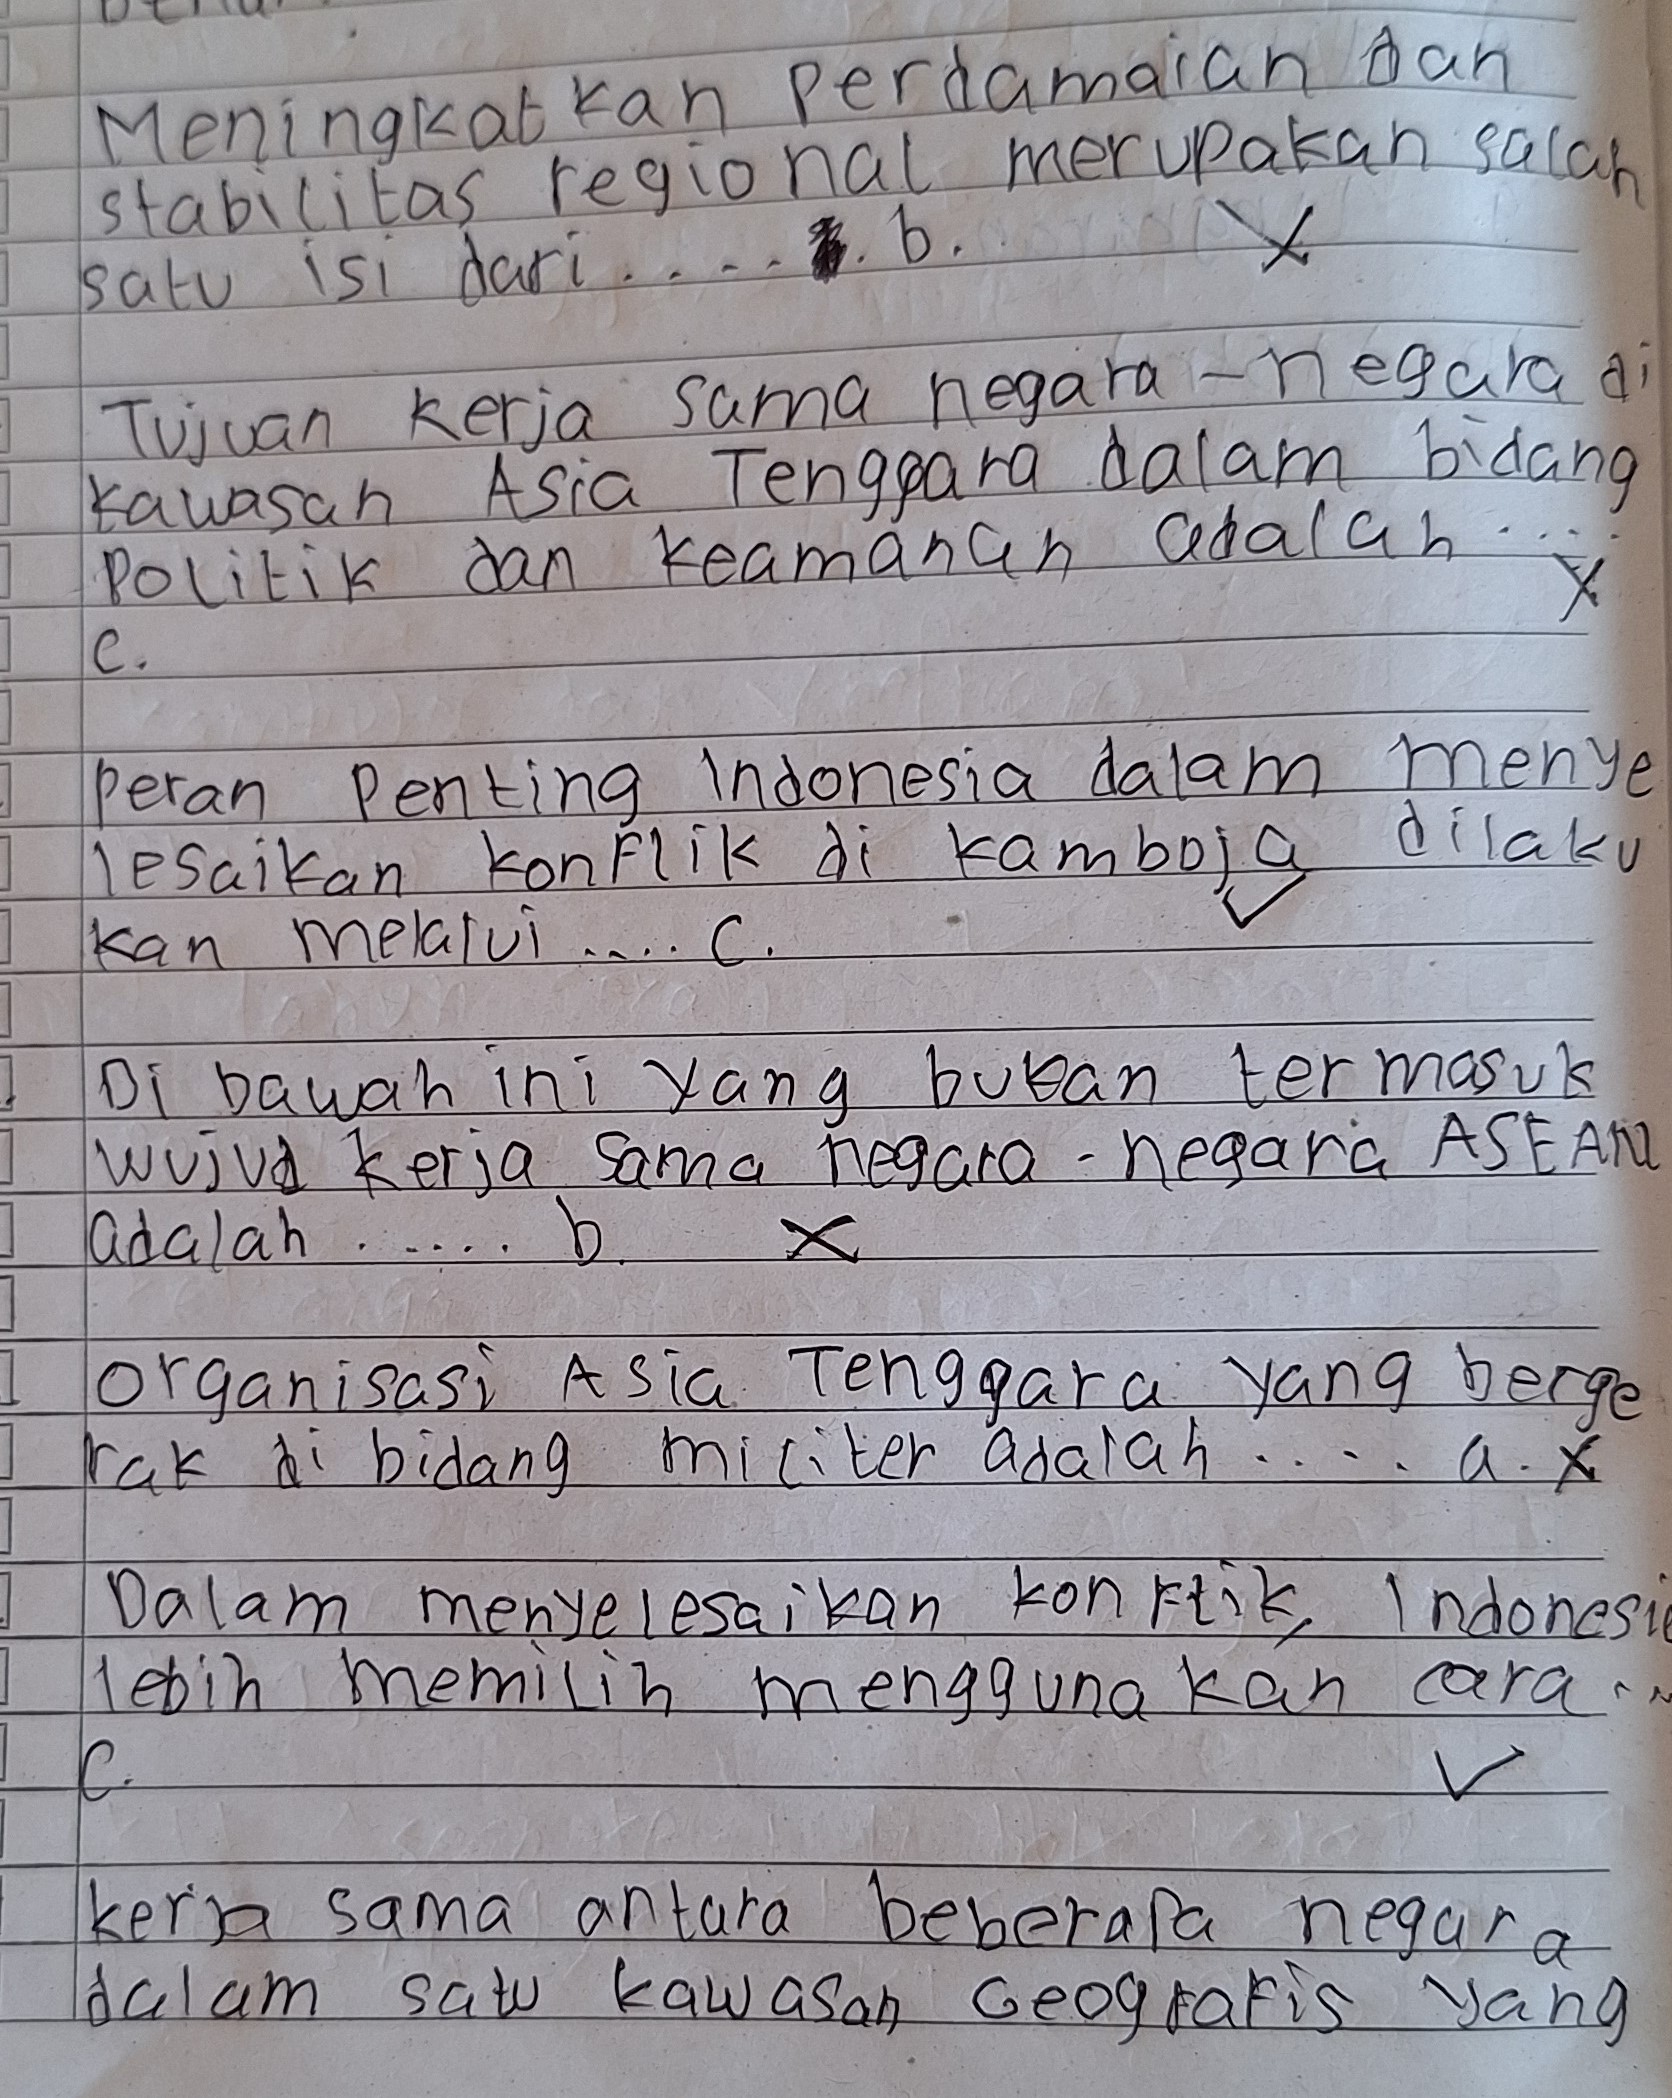 Meningkatkan perdamaian dan
stabilitas regional merupakan salah
satu isi dari ..... b.
Tujuan kerja sama negara-negara di
kawasan Asia Tenggara dalam bidang
politik dan keamanan adalah ....
c.
peran penting Indonesia dalam menye
lesaikan konflik di kamboja dilaku
kan melalui .... c.
Di bawah ini yang bukan termasuk
wujud kerja sama negara-negara ASEAN
adalah ...... b.
organisasi Asia Tenggara yang berge
rak di bidang militer adalah .... a.
Dalam menyelesaikan konflik, Indonesia
lebih memilih menggunakan cara ...
c.
kerja sama antara beberapa negara
dalam satu kawasan Geografis yang